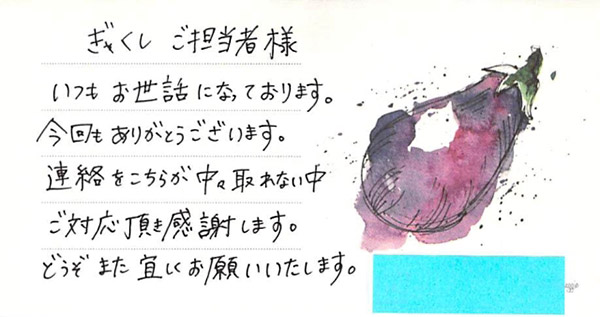 ぎゃくし ご担当者様
いつも お世話になっております。
今回も ありがとうございます。
連絡をこちらが 中々取れない中
ご対応 頂き 感謝します。
どうぞ また 宜しくお願いいたします。